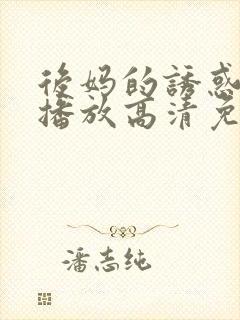 後妈的誘惑
播放高清免
潘志纯